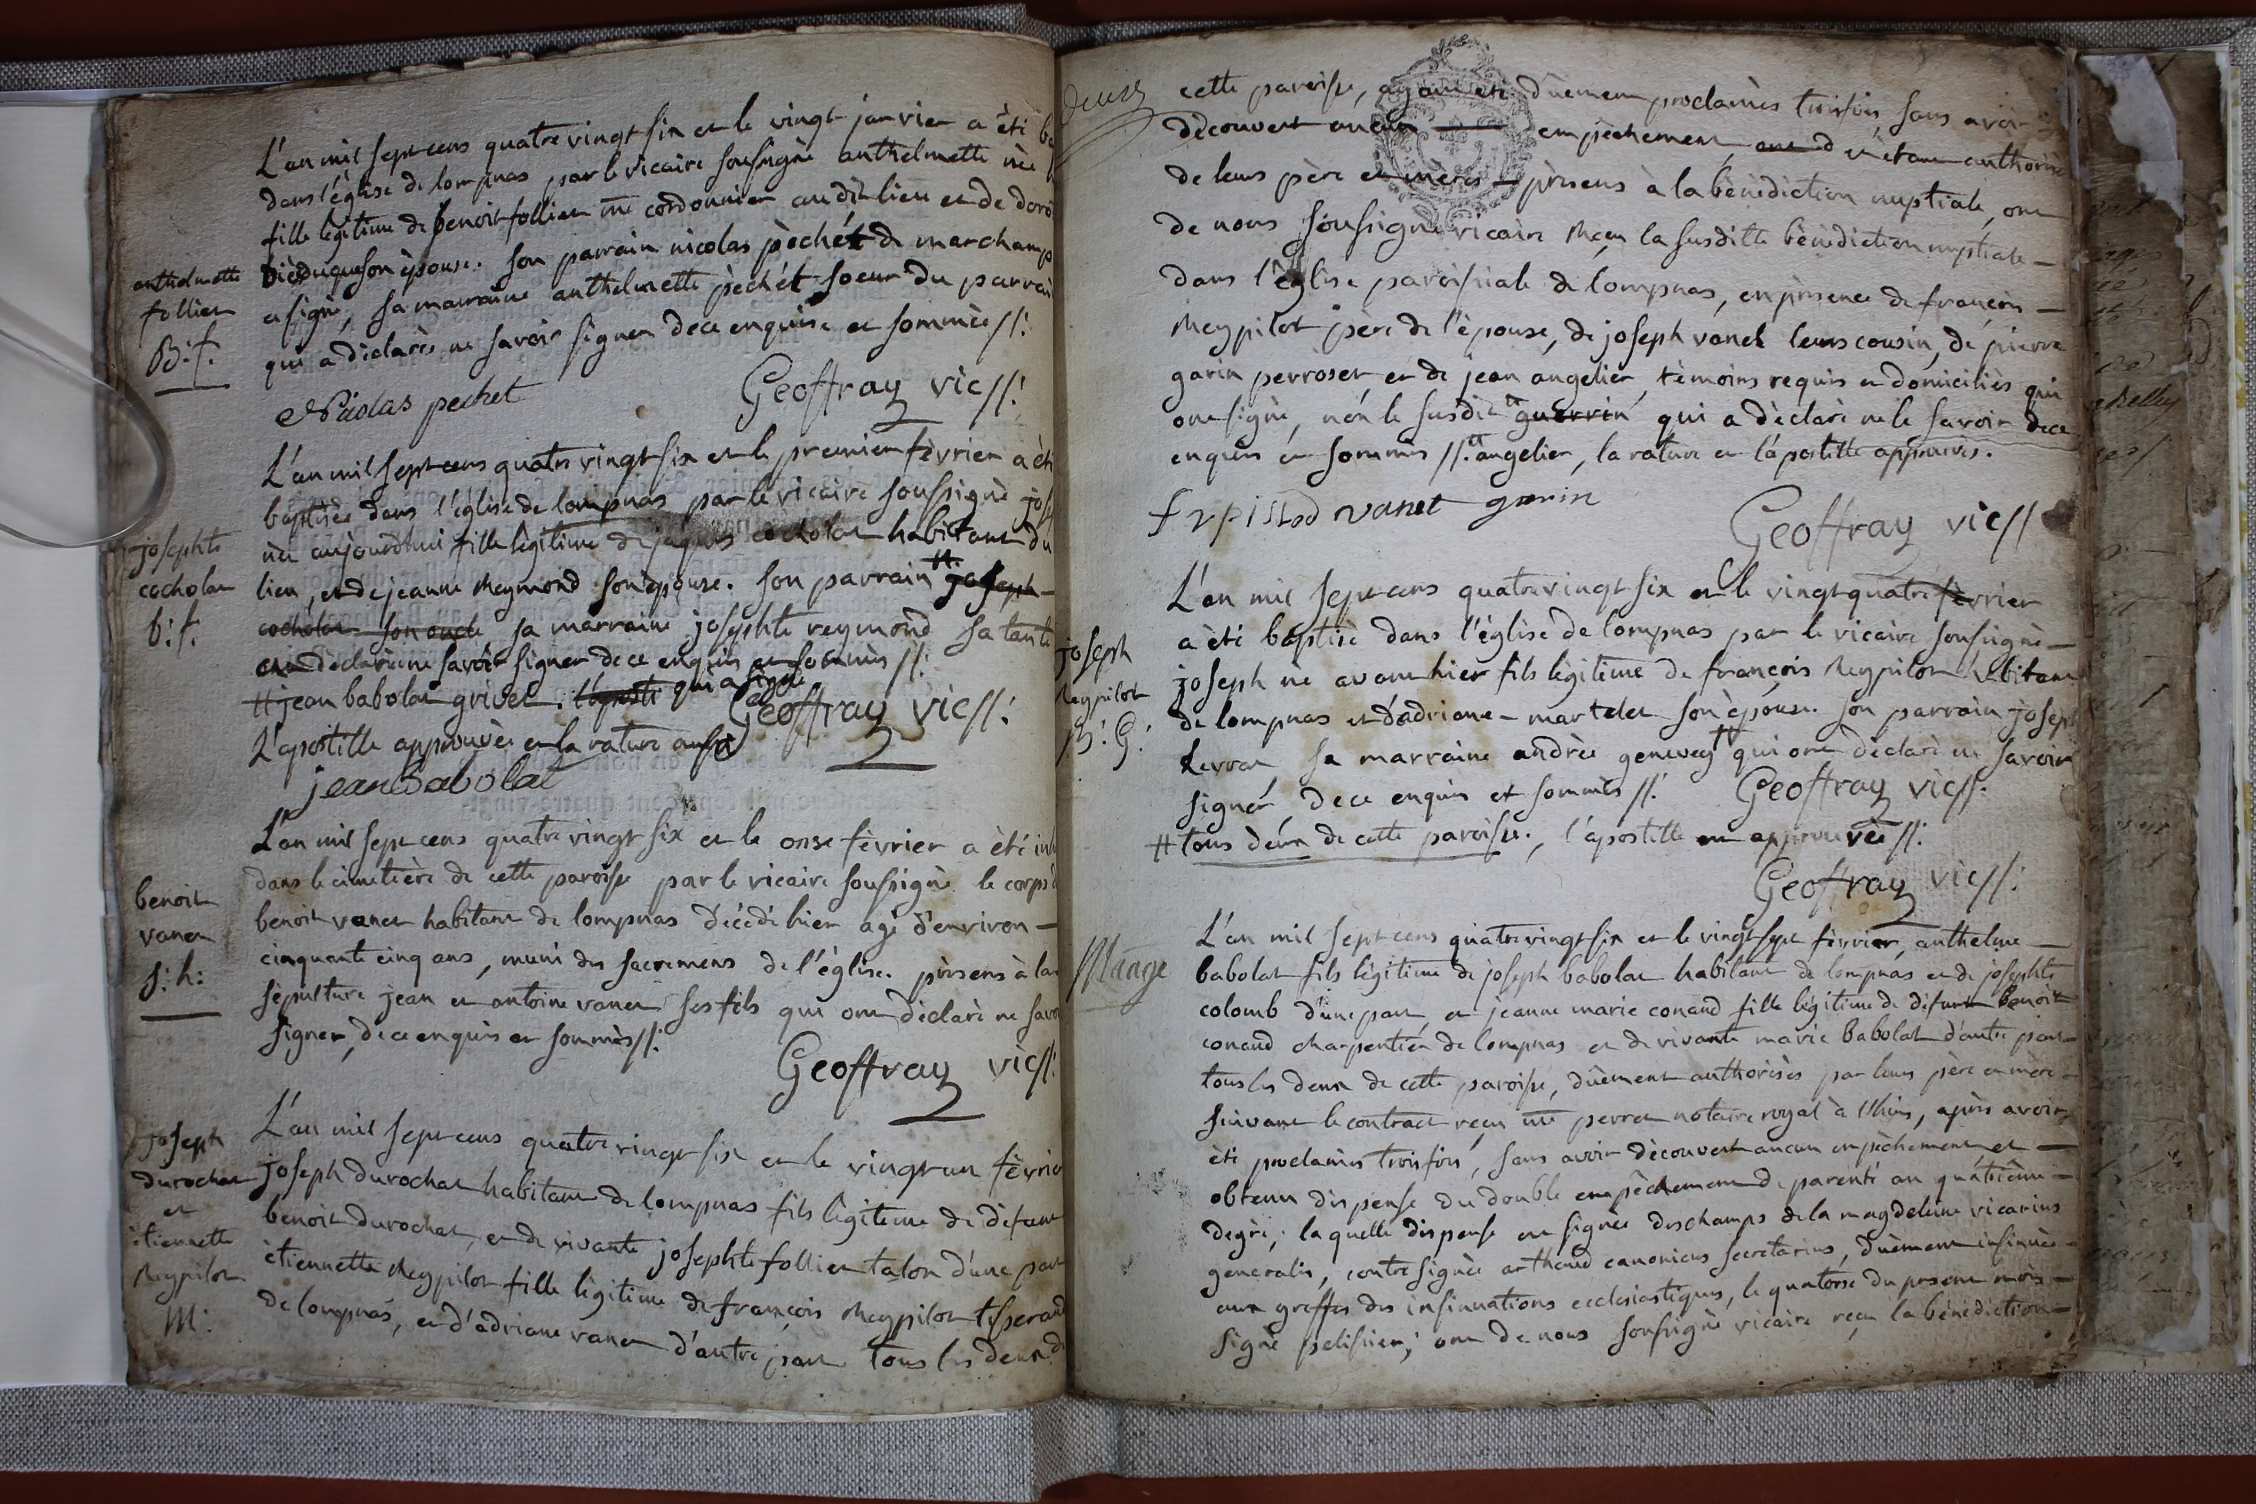 L'an mil sept cens quatre vingt six et le vingt janvier a èté
dans l'église de lompnas par le vicaire soussigné anthelmette née
fille légitime de benoit follier me cordonnier au dit lieu et de
son épouse. son parrain nicolas péchét de marchamp
a signé, sa marraine anthelmette péchét soeur du parrain
qui a déclarés ne savoir signer de ce enquise et sommée //:
anthelmette
follier
B: f.
Nicolas pechet
Geoffray vic//:
L'an mil sept cens quatre vingt six et le premier février a èté
baptisée dans l'église de lompnas par le vicaire soussigné
née aujourdhui fille légitime de jaques cocholat habitant du
lieu, et de jeanne Reymond son épouse. son parrain # joseph
cocholat son oncle sa marraine josephte reymond sa tante
ont déclaré ne savoir signer de ce enquis et sommés //:
# jean babolat grivet. qui a signé
Geoffray vic//:
L'apostille approuvée et la rature aussi
jean Babolat
josephte
cocholat
b: f.
L'an mil sept cens quatre vingt six et le onse février a èté
dans le cimetière de cette paroisse par le vicaire soussigné le corps
benoit vanet habitant de lompnas décédé hier agé d'environ
cinquante cinq ans, muni des sacremens de l'église. présens à la
sépulture jean et antoine vanet ses fils qui ont déclaré ne
signer, de ce enquis et sommés //:
benoit
vanet
s: h:
Geoffray vic//:
L'an mil sept cens quatre vingt six et le vingt un
joseph durochat habitant de lompnas fils légitime de défunt
benoit durochat, et de vivante josephte follier talon d'une part
ètiennette Reypilot fille légitime de françois Reypilot tisserand
de lompnas, et d'adriane vanet d'autre part tous les deux de
joseph
durochat
et
ètiennette
Reypilot
M:
cette paroisse, ayant été dùement proclamés trois fois, sans avoir
découvert aucun empêchement et étant authorisés
de leurs père et mères présens à la bénédiction nuptiale, ont
de nous soussigné vicaire Reçu la susditte bénédiction nuptiale
dans l'église paroissiale de lompnas, en présence de françois
Reypilot père de l'épouse, de joseph vanet leurs cousin, de pierre
garin perroset et de jean angelier, témoins requis et domiciliés qui
ont signé, non le susdit # guerrin qui a déclaré ne le savoir de ce
enquis et sommés //. # angelier, la rature et l'apostille approuvés.
vanet garin
Geoffray vic//
L'an mil sept cens quatre vingt six et le vingt quatre février
a èté baptisé dans l'église de lompnas par le vicaire soussigné
joseph né avant hier fils légitime de françois Reypilot habitant
de lompnas et d'adriane martelet son épouse. son parrain joseph
sa marraine andrée genevey # qui ont déclaré ne savoir
signér de ce enquis et sommés //. Geoffray vic//.
# tous deux de cette paroisse., l'apostille approuvée //:
joseph
Reypilot
B: G:
Geoffray vic//:
L'an mil sept cens quatre vingt six et le vingt sept février, anthelme
babolat fils légitime de joseph babolat habitant de lompnas et de josephte
colomb d'une part et jeanne marie conand fille légitime de défunt benoit
conand charpentier de lompnas et de vivante marie babolat d'autre part
tous les deux de cette paroisse, dùement authorisés par leurs père et mère
suivant le contract reçu me perret notaire royal à lhuis, après avoir
èté proclamés trois fois, sans avoir découvert aucun empêchement et
obtenu dispense du double empêchement de parenté au quatrième
degré, la quelle dispense est signée deschamps de la magdeleine vicarius
generalis, contresignée arthaud canonicus secretarius, dùement insinuée
aux greffes des insinuations ecclésiastiques, le quatorse du présent mois
signé pelissier; ont de nous soussigné vicaire reçu la bénédiction
Mange